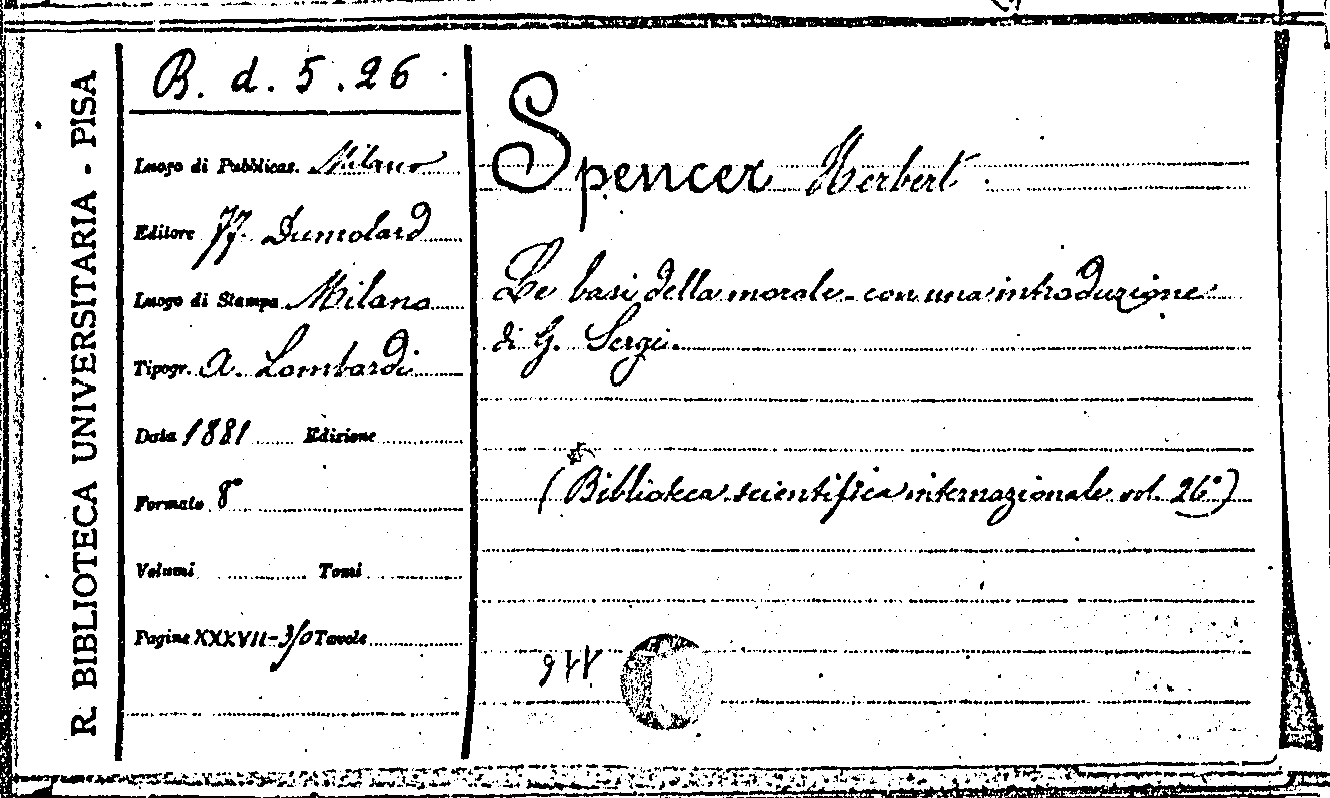 R. BIBLIOTECA UNIVERSITARIA - PISA
B. d. 5. 26
Luogo di Pubblicaz. Milano
Editore FF. Dumolard
Luogo di Stampa Milano
Tipogr. A. Lombardi
Data 1881 Edizione
Formato 8°
Volumi Tomi
Pagine XXXVII-310 Tavole
Spencer Herbert
Le basi della morale - con una introduzione
di G. Sergi.
(Biblioteca scientifica internazionale vol. 26°)